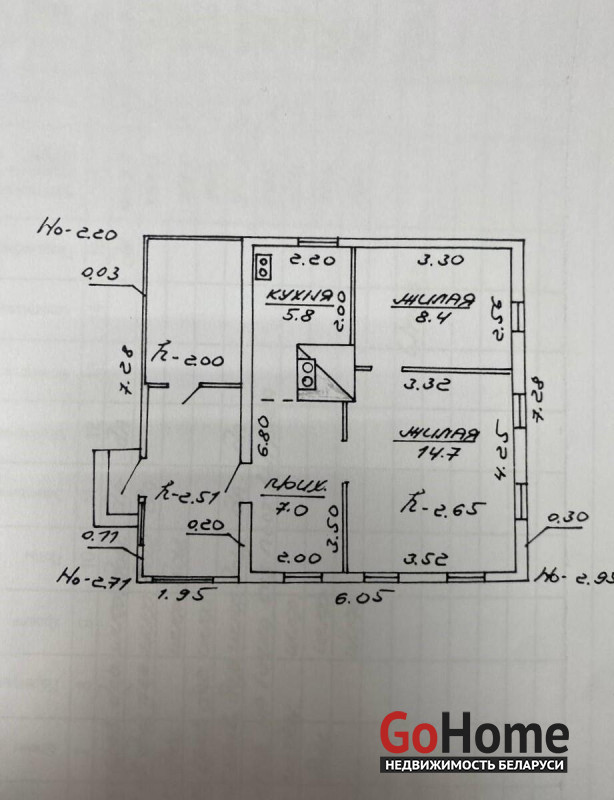 Но-2.20
0.03
2.20
3.30
кухня
5.8
2.00
жилая
8.4
2.52
h-2.00
7.28
3.32
7.28
6.80
жилая
14.7
4.25
h-2.51
прих.
7.0
h-2.65
0.20
3.50
0.30
0.11
2.00
3.52
Но-2.71
1.95
6.05
Но-2.95
GoHome
НЕДВИЖИМОСТЬ БЕЛАРУСИ